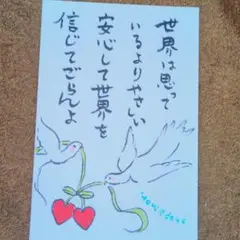 世界は思って
いるよりやさしい
安心して世界を
信じてごらんよ